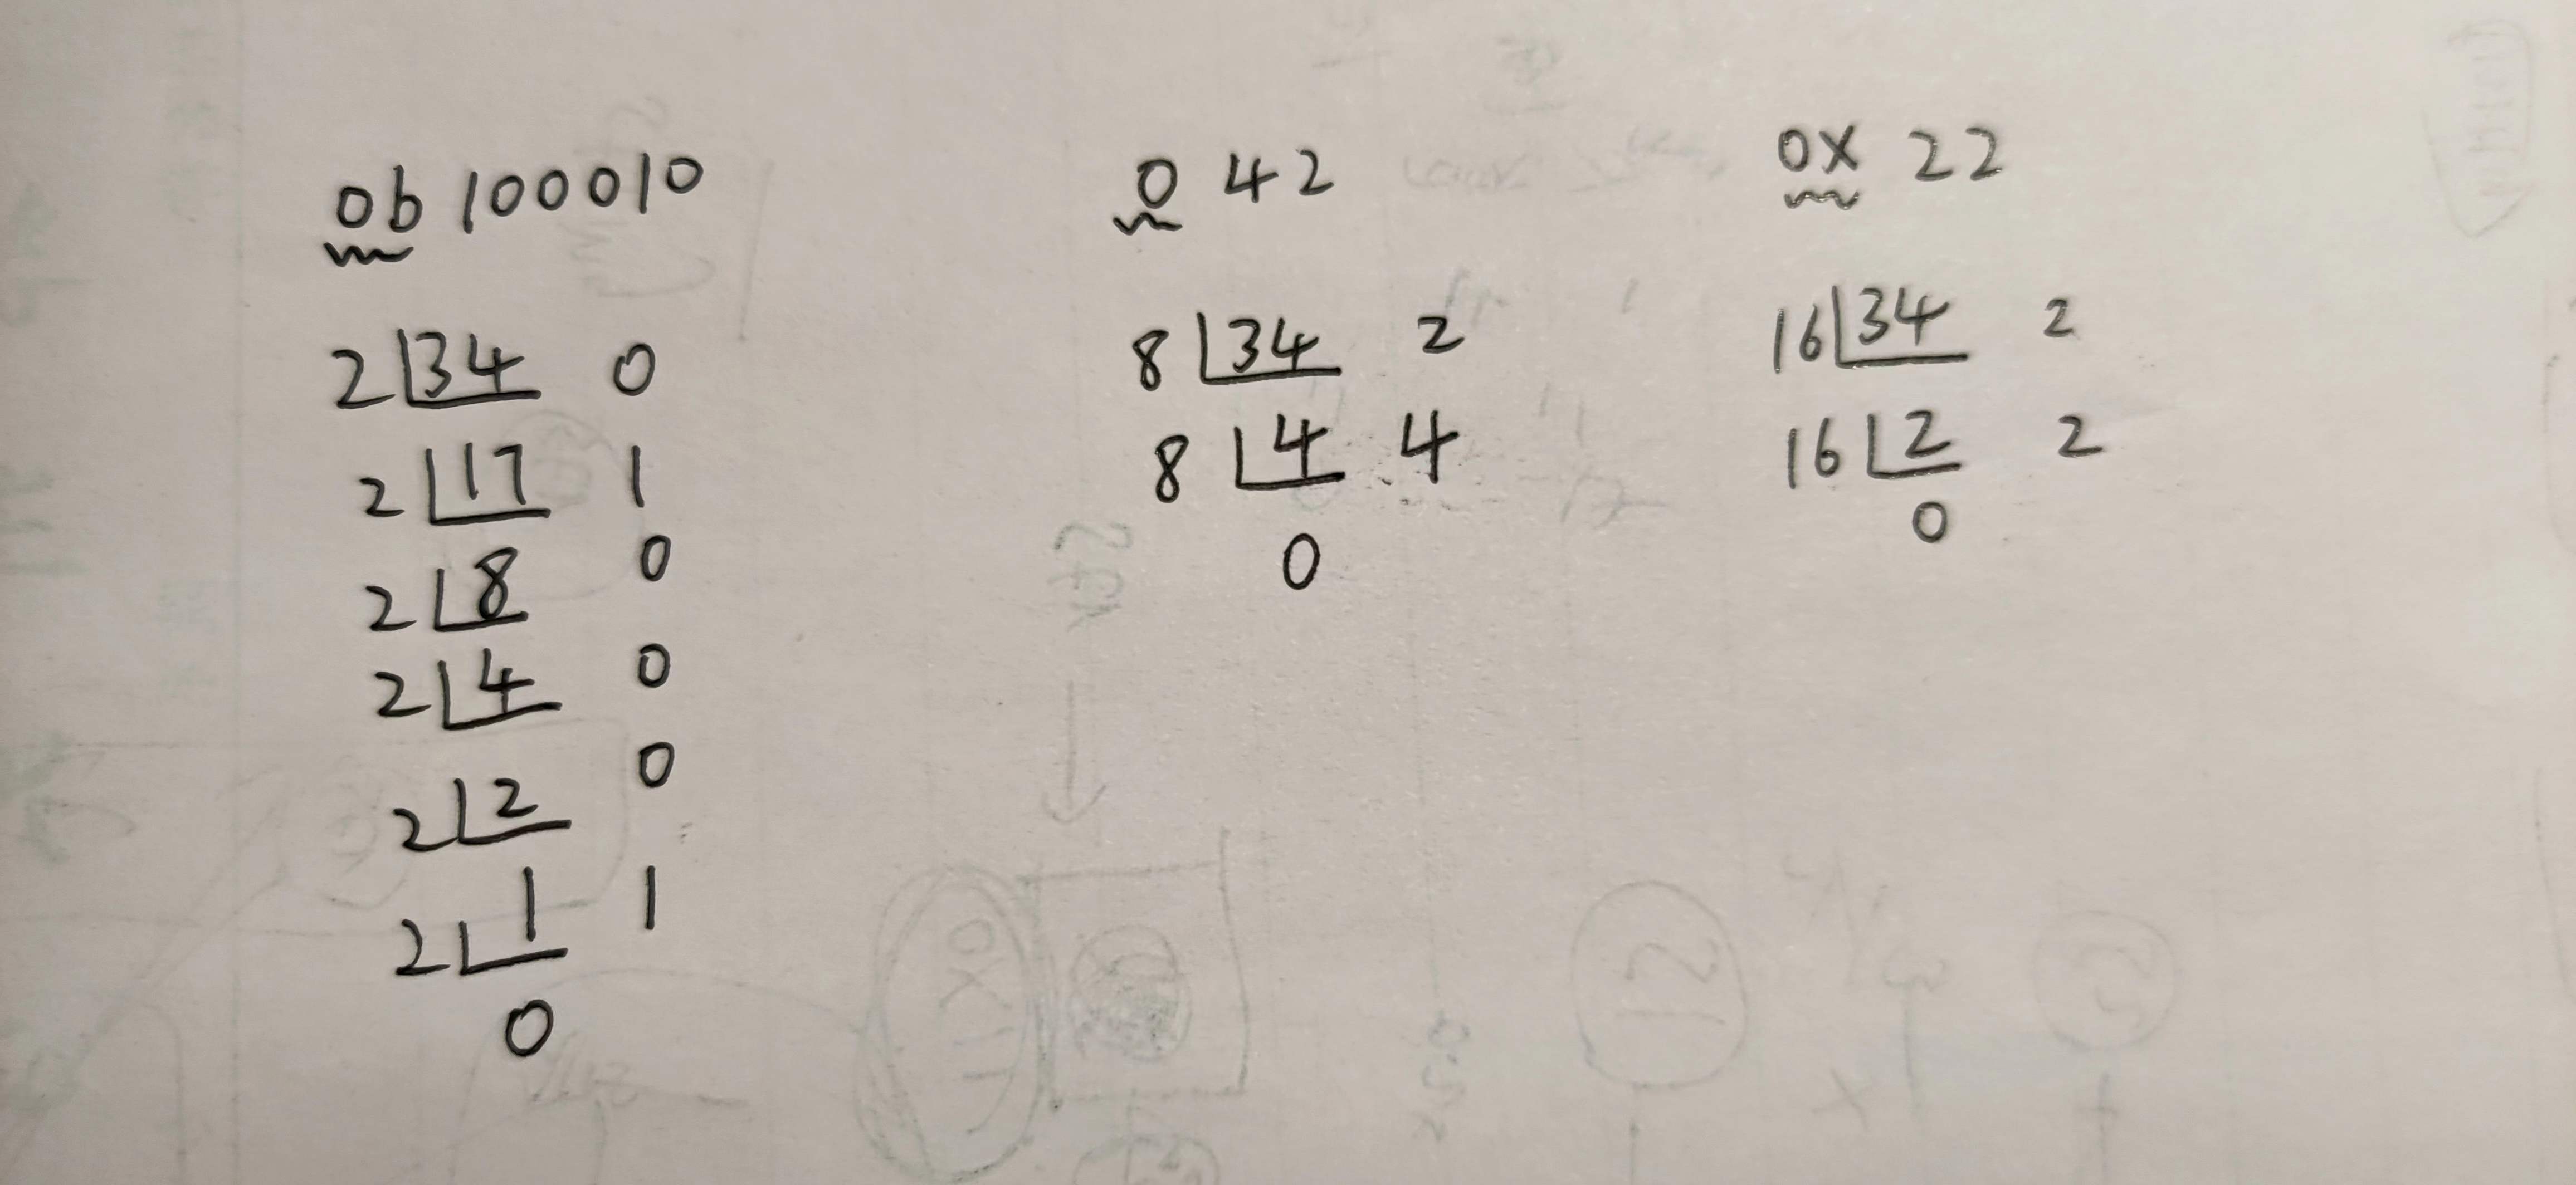 0b 100010
2 34 0
2 17 1
2 8 0
2 4 0
2 2 0
2 1 1
0
0 42
8 34 2
8 4 4
0
0x 22
16 34 2
16 2 2
0